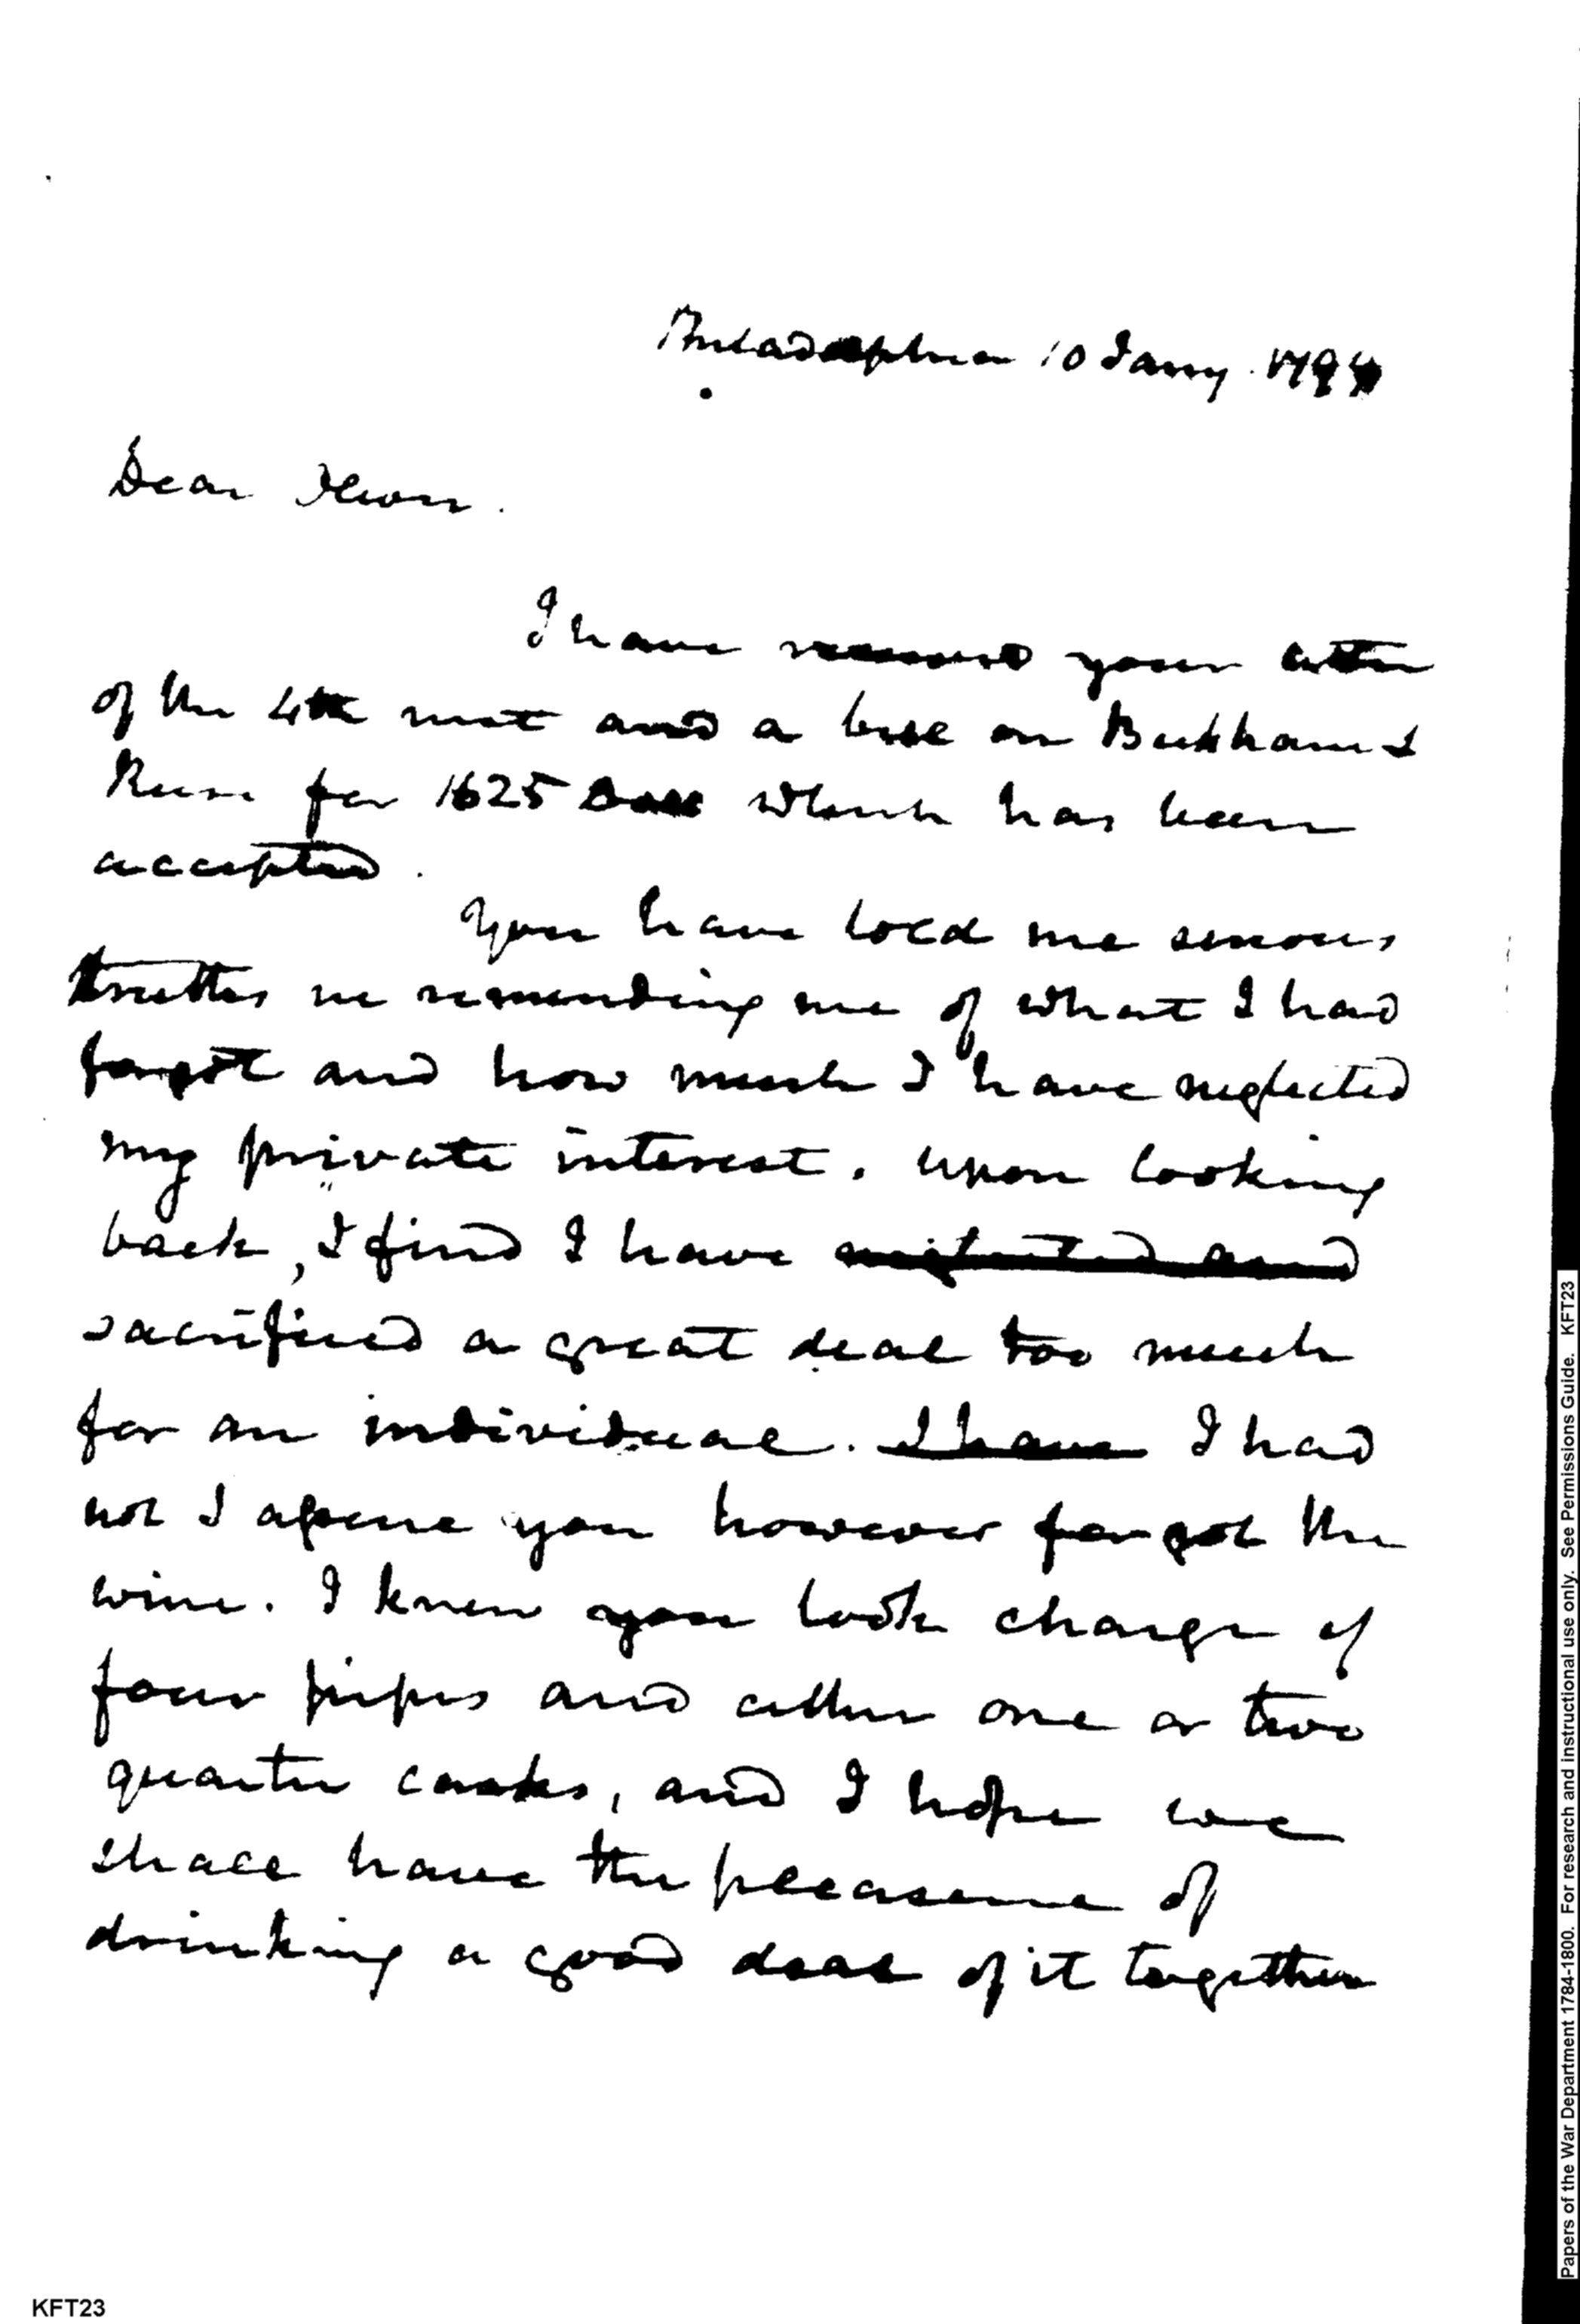 Philadelphia 10 Jany. 1794
Dear
I have received your letter
of the 4th inst and a bill on
for 1625 Dolls which has been
accepted.
You have told me serious
truths in reminding me of what I had
forgot and how much I have neglected
my private interest. Upon looking
back, I find I have neglected and
sacrificed a great deal too much
for an individual. I have I had
not I assure you however forgot the
wine. I knew you took charge of
four pipes and either one or two
quarter casks, and I hope we
shall have the pleasure of
drinking a good deal of it together
KFT23
Papers of the War Department 1784-1800. For research and instructional use only. See Permissions Guide. KFT23